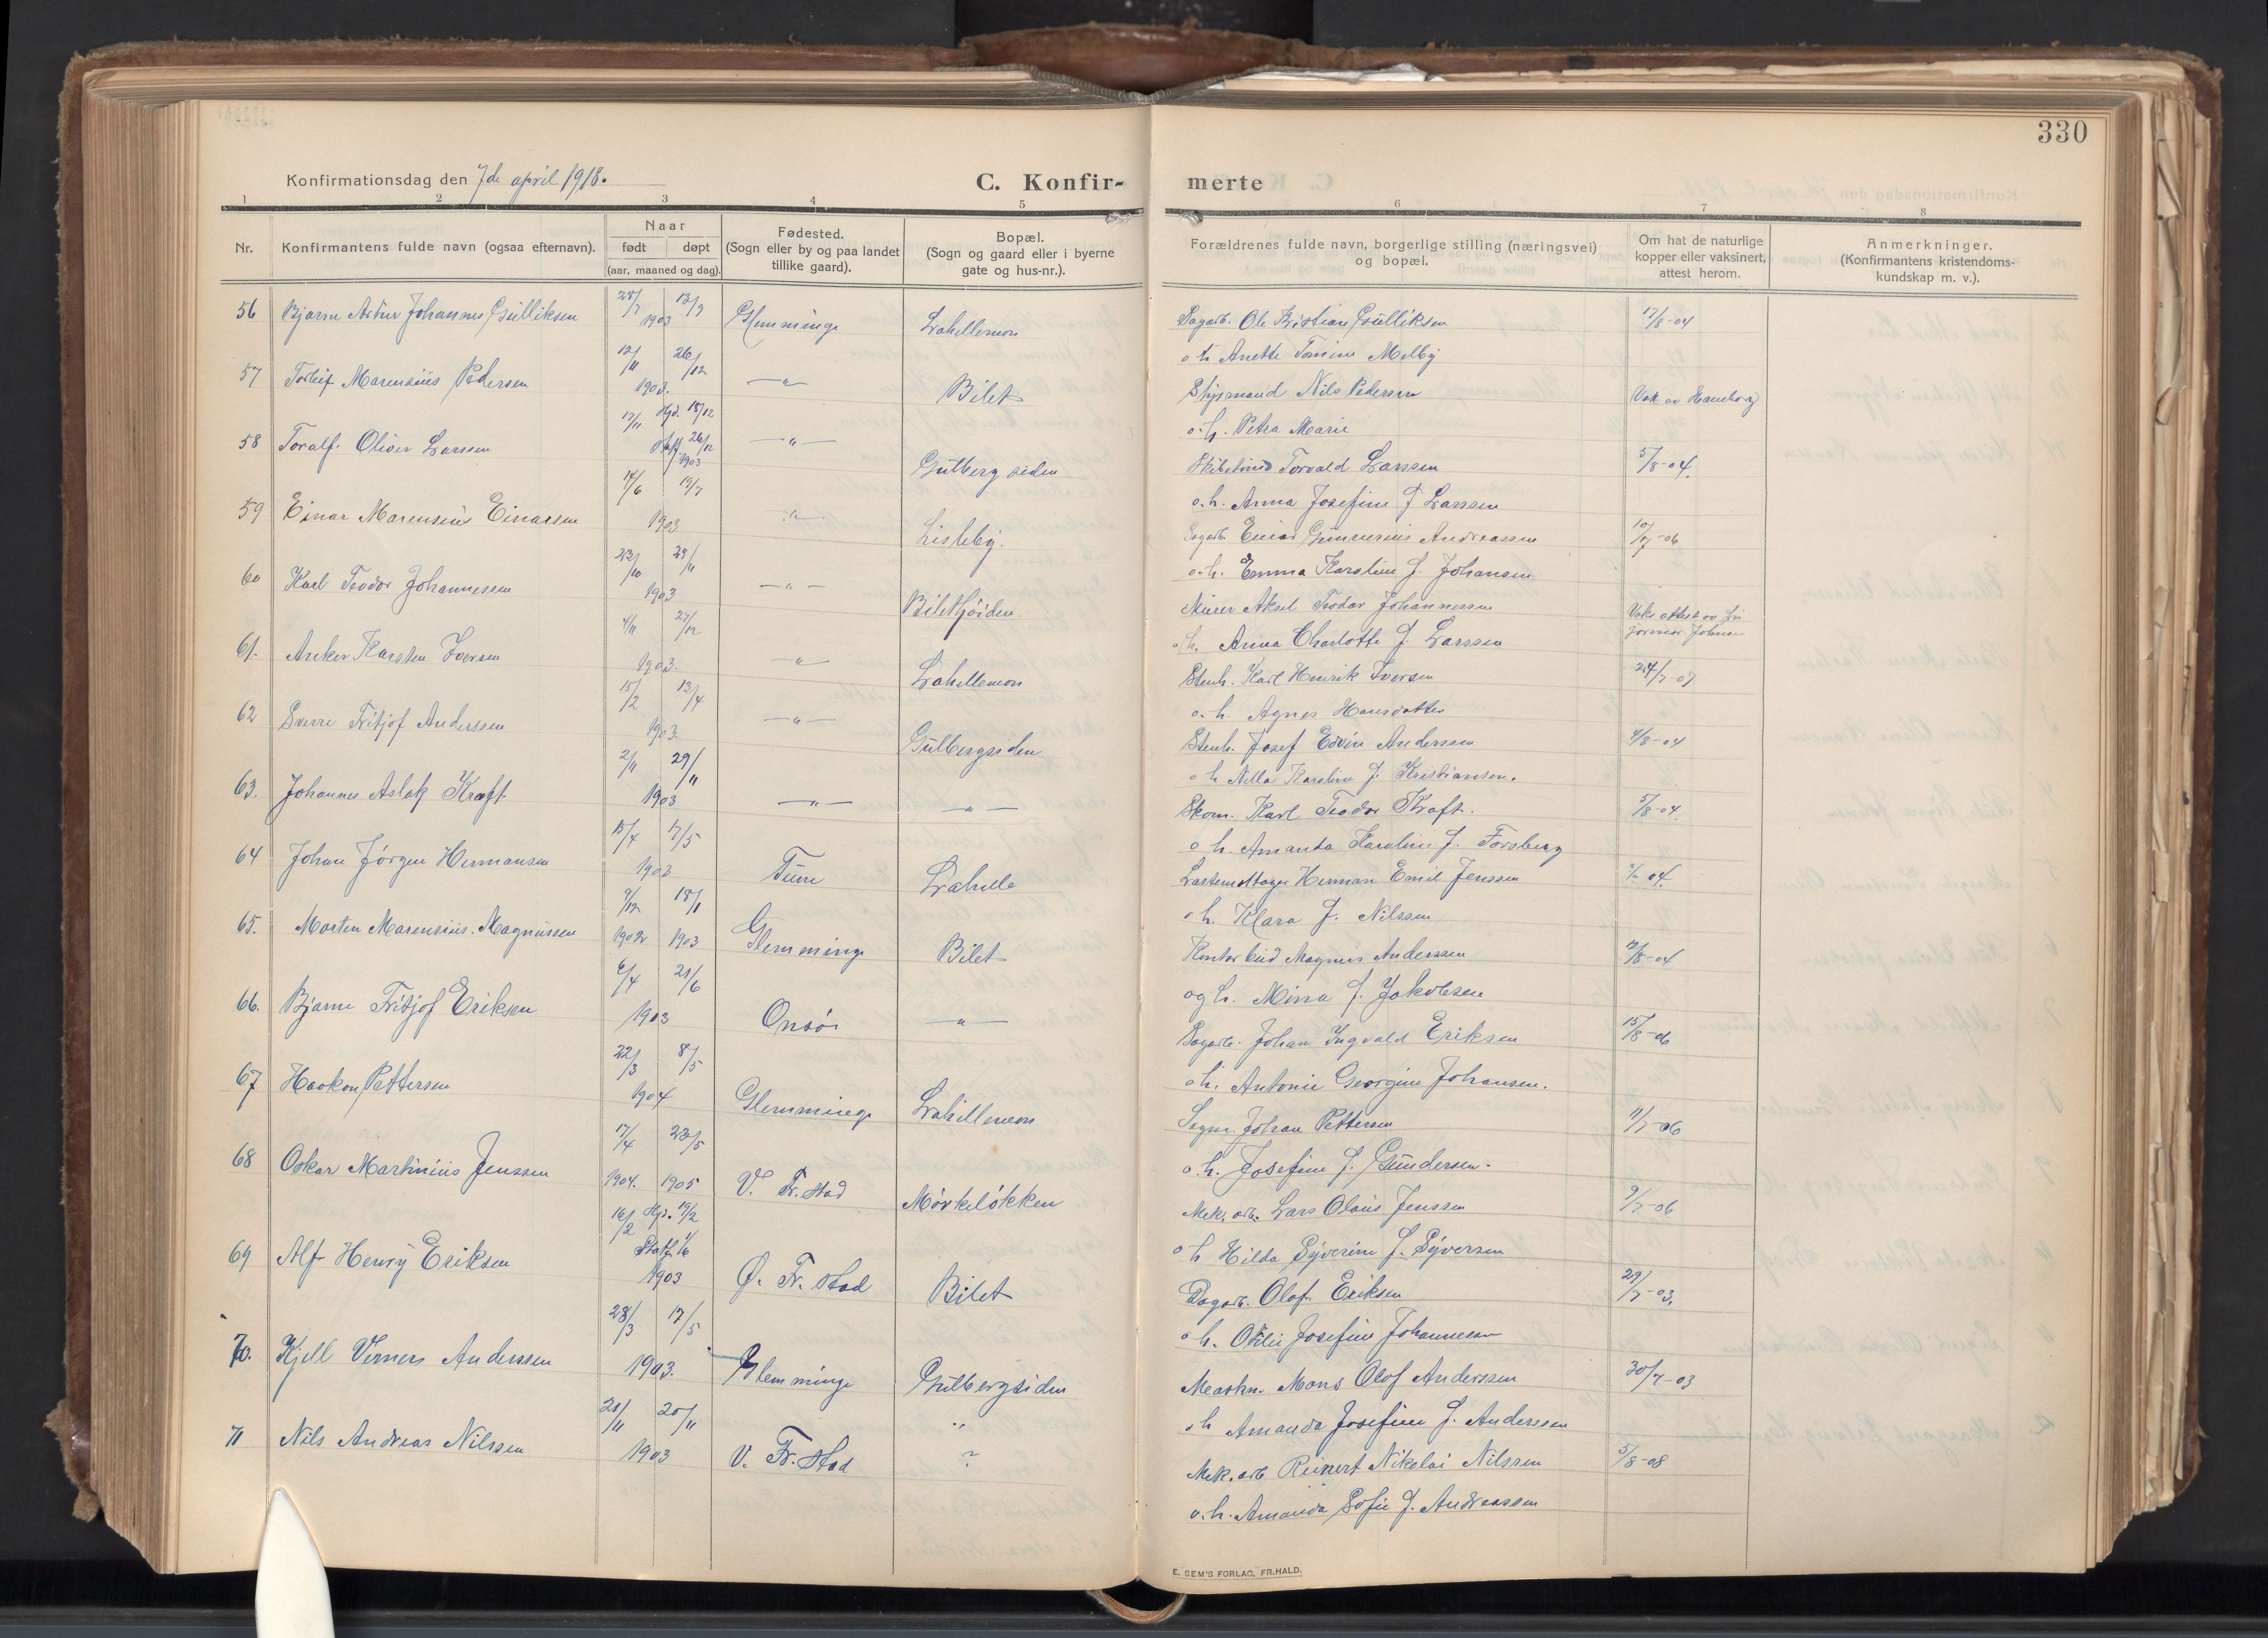 330
Konfirmationsdag den 7de april 1918.
C. Konfir- merte
1 2 3 4 5 6 7 8
Nr.
Konfirmantens fulde navn (ogsaa efternavn).
Naar
født døpt
(aar, maaned og dag).
Fødested.
(Sogn eller by og paa landet
tillike gaard).
Bopæl.
(Sogn og gaard eller i byerne
gate og hus-nr.).
Forældrenes fulde navn, borgerlige stilling (næringsvei)
og bopæl.
Om hat de naturlige
kopper eller vaksinert,
attest herom.
Anmerkninger.
(Konfirmantens kristendoms-
kundskap m. v.).
56 Bjarne Artur Johannes Gulliksen 1903 Glemminge Lahellemoen Dagarb. Ole Kristian Gulliksen 17/8-04
o h Anette Tomine Melby
57 Torleif Marensius Pedersen 12/11 26/12 1903. —"— Bilet Styrmand Nils Pedersen Vak av Hamborg
o. h. Petra Marie
58 Toralf Oliver Larssen 17/11 Hjd. 18/12 Stadf. 26/12 1903 —"— Gulbergsiden Torvald Larssen 5/8-04.
o. h. Anna Josefine f Larssen
59 Einar Marensius Einarsen 14/6 19/7 1903 —"— Lisleby. Einar Andreassen 10/7-06
o. h. Emma Karoline f. Johansen
60 Karl Teodor Johannessen 23/10 29/11 1903 —"— Bilethøiden. Murer Aksel Teodor Johannessen Vaks attest av
jormor Johnsen
o h. Anna Charlotte f. Larssen
61. Anker Karsten Iversen 4/11 27/12 1903. —"— Lahellemoen Stenh. Karl Henrik Iversen 24/7-07
o. h. Agnes Hansdatter
62 Sverre Fritjof Anderssen 15/2 13/4 1903. —"— Gulbergsiden Stenh. Josef Edvin Anderssen 4/8-04
o h Nella Karoline f. Kristiansen.
63. Johannes Aslak Kraft 2/11 29/11 1903 —"— —"— Skom. Karl Teodor Kraft. 5/8-04.
o h. Amanda Karoline f. Forsberg
64 Johan Jørgen Hermansen 15/4 17/5 1903 Tune Lahelle Herman Emil Jenssen
o h. Klara f. Nilssen
65. Morten Marensius Magnussen 9/12 18/1 1902 1903 Glemminge Bilet Kontorbud Magnus Anderssen
og h. Mina f. Jakobsen
66. Bjarne Fritjof Eriksen 6/4 21/6 1903 Onsø —"— Dagarb. Johan Ingvald Eriksen 15/8-06
o h. Antonie Georgine Johansen.
67 Haakon Pettersen 22/3 8/5 1904 Glemminge Lahellemoen Johan Pettersen 11/7-06
o. h. Josefine f. Gundersen.
68 Oskar Martinius Jenssen 17/4 22/5 1904. 1905 V. Fr.stad Mørkeløkken Mek. arb. Lars Olaus Jenssen 9/7-06
o h Hilda Syverine f. Syversen
69 Alf Henry Eriksen 16/2 Hjd. 19/2 Stadf. 1/6 1903 Ø. Fr. stad Bilet Dagarb. Olaf Eriksen 29/7-03.
o h. Otilie Josefine Johannesen
70. Kjell Verner Anderssen 28/3 17/5 1903. Glemminge Gulbergsiden Maskn. Mons Olof Anderssen 30/7-03
o h Amanda Josefine f. Anderssen
71 Nils Andreas Nilssen 1903 V. Fr.stad " ? Mek. arb Reinert Nikolai Nilssen 5/8-08
o. h. Amanda Sofie f. Andreassen
E. SEM'S FORLAG, FR.HALD.